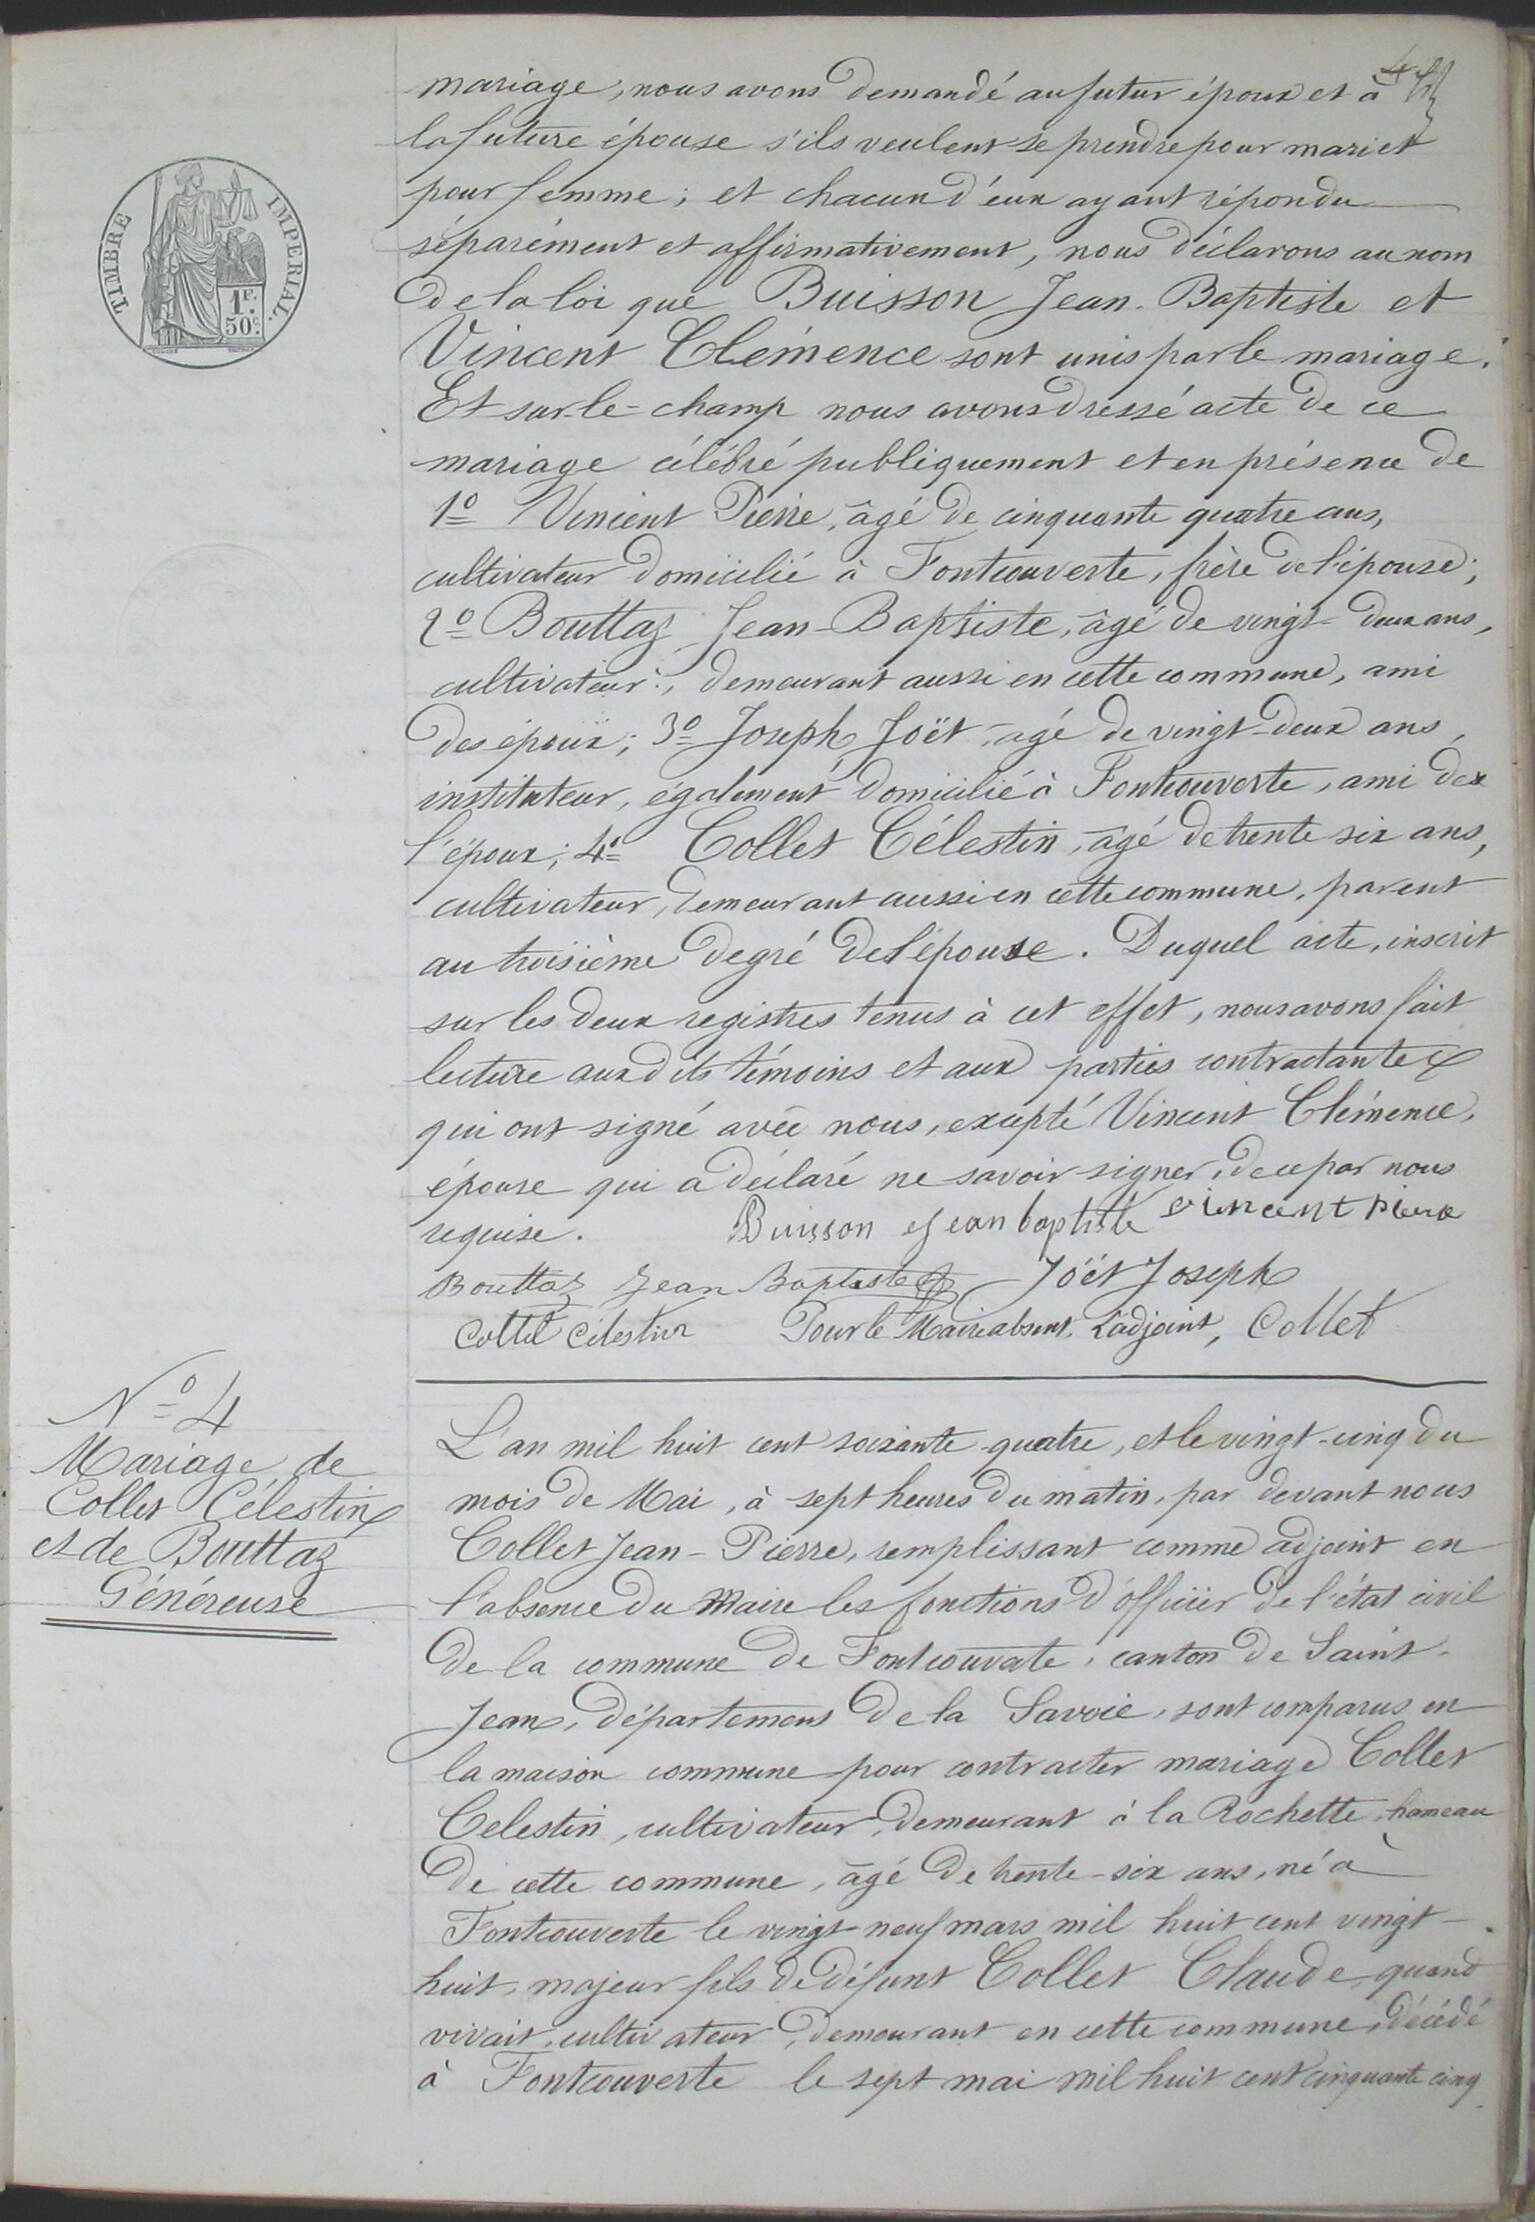 4
mariage, nous avons demandé au futur époux et à
la future épouse s'ils veulent se prendre pour mari et
pour femme ; et chacun d'eux ayant répondu
séparément et affirmativement, nous déclarons au nom
de la loi que Buisson Jean-Baptiste et
Vincent Clémence sont unis par le mariage.
Et sur-le-champ nous avons dressé acte de ce
mariage célébré publiquement et en présence de
1º Vincent Pierre, âgé de cinquante quatre ans,
cultivateur domicilié à Fontcouverte, frère de l'épouse ;
2º Bouttaz Jean-Baptiste, âgé de vingt-deux ans,
cultivateur, demeurant aussi en cette commune, ami
des époux ; 3º Joseph Joët, âgé de vingt-deux ans,
instituteur, également domicilié à Fontcouverte, ami de
l'époux ; 4º Collet Célestin, âgé de trente six ans,
cultivateur, demeurant aussi en cette commune, parent
au troisième degré de l'épouse. Duquel acte, inscrit
sur les deux registres tenus à cet effet, nous avons fait
lecture auxdits témoins et aux parties contractantes
qui ont signé avec nous, excepté Vincent Clémence,
épouse qui a déclaré ne savoir signer, de ce par nous
requise. Buisson Jean baptiste vincent Pierre
Bouttaz Jean Baptiste Joët Joseph
Collet Célestin Pour le Maire absent, L'adjoint, Collet
TIMBRE IMPERIAL.
1F.
50c.
Nº 4
Mariage de
Collet Célestin
et de Bouttaz
Généreuse
L'an mil huit cent soixante-quatre, et le vingt-cinq du
mois de Mai, à sept heures du matin, par devant nous
Collet Jean-Pierre, remplissant comme adjoint en
l'absence du Maire les fonctions d'officier de l'état civil
de la commune de Fontcouverte, canton de Saint-
Jean, département de la Savoie, sont comparus en
la maison commune pour contracter mariage Collet
Celestin, cultivateur, demeurant à la Rochette, hameau
de cette commune, âgé de trente-six ans, né à
Fontcouverte le vingt-neuf mars mil huit cent vingt-
huit, majeur fils de défunt Collet Claude, quand
vivait, cultivateur, demeurant en cette commune, décédé
à Fontcouverte le sept mai mil huit cent cinquante cinq